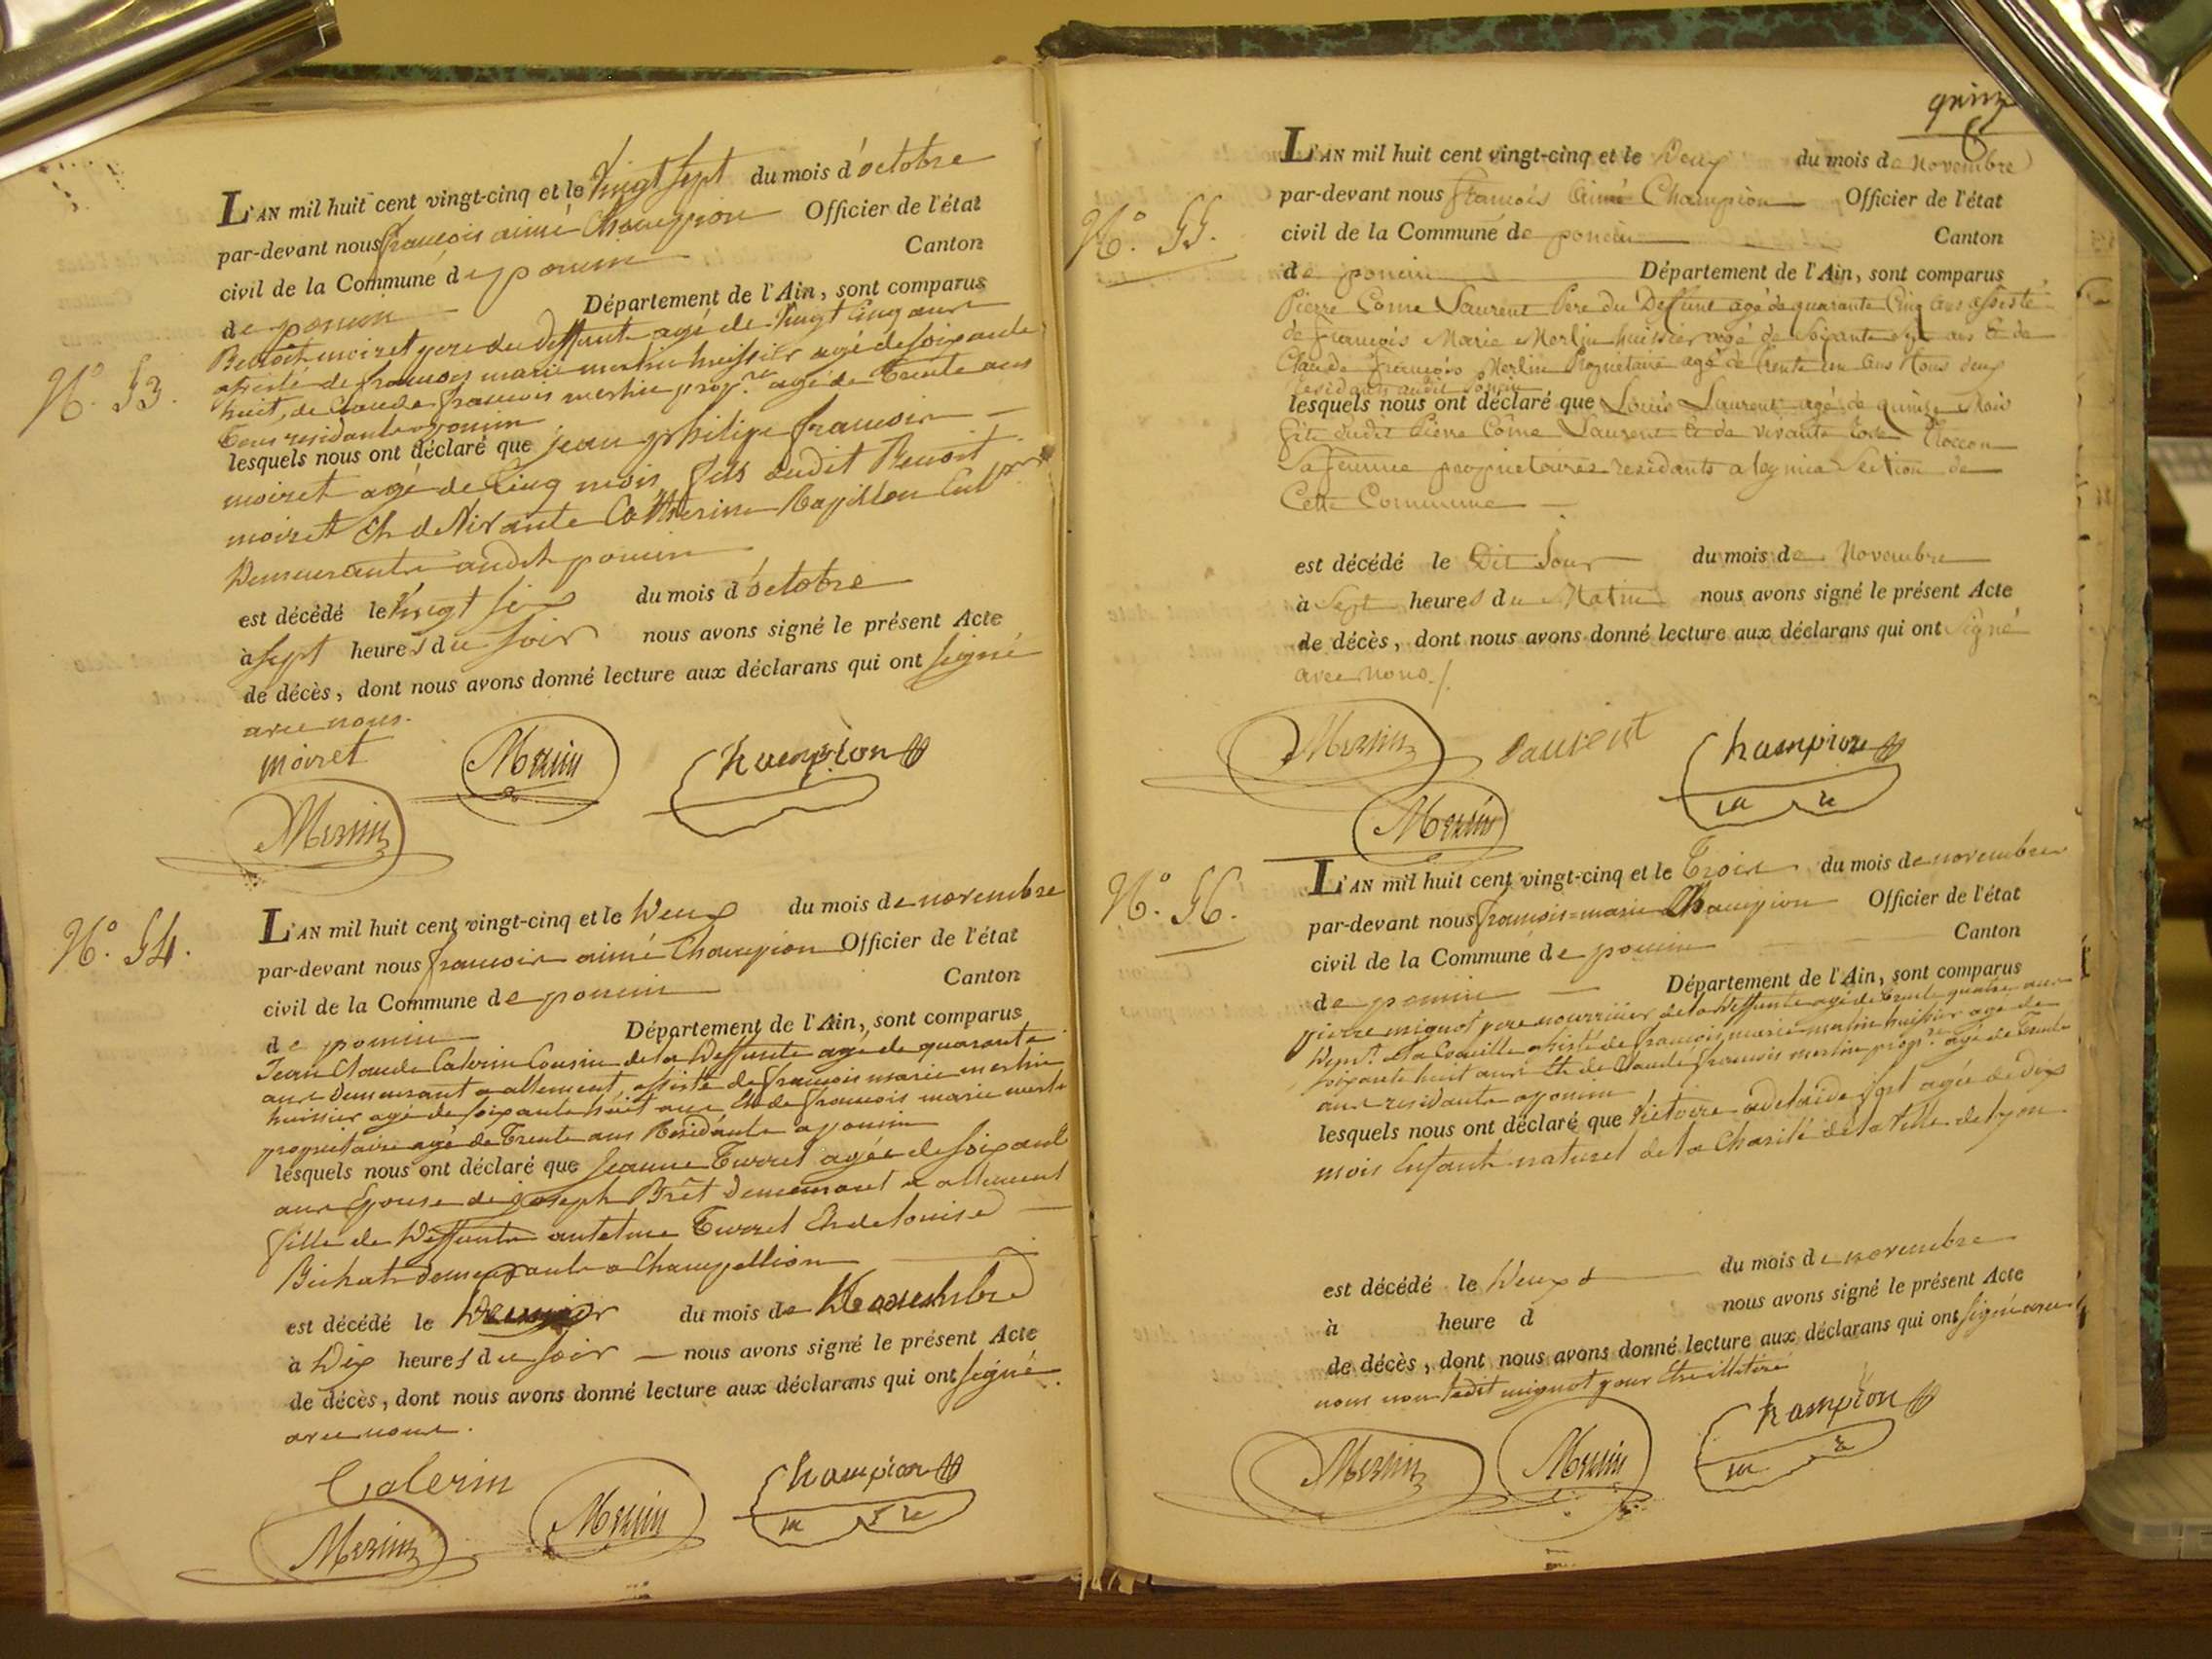 N.º 53.
L'AN mil huit cent vingt-cinq et le Vingt sept du mois d'octobre
par-devant nous françois aimé Champion Officier de l'état
civil de la Commune de poncin Canton
de poncin Département de l'Ain, sont comparus
Benoît moiret pere du deffunt agé de Vingt Cinq ans
assisté de françois marie merlin huissier agé de soixante
huit, de Claude françois merlin prop.re agé de Trente ans
Tous residants a poncin
lesquels nous ont déclaré que jean philipe françois
moiret agé de Cinq mois fils dudit Benoit
moiret Et de Vivante Catherine Papillon
Demeurants audit poncin
est décédé le Vingt six du mois d'octobre
à sept heures du soir nous avons signé le présent Acte
de décès, dont nous avons donné lecture aux déclarans qui ont signé
avec nous.
moiret Merlin Champion
Merlin
N.º 54.
L'AN mil huit cent vingt-cinq et le Deux du mois de novembre
par-devant nous françois aimé Champion Officier de l'état
civil de la Commune de poncin Canton
de poncin Département de l'Ain, sont comparus
Jean Claude Calerin Cousin de la Deffunte agé de quarante
ans Demeurant a allement, assisté de françois marie merlin
huissier agé de soixante huit ans, Et de françois marie merlin
propriétaire agé de Trente ans Residants a poncin
lesquels nous ont déclaré que Jeanne Turrel agée de soixante
ans Epouse de joseph Brêt Demeurant a allement
fille de Deffunts antelme Turrel Et de louise
Bichat demeurants a Champollion
est décédé le du mois de Novembre
à Dix heures du soir nous avons signé le présent Acte
de décès, dont nous avons donné lecture aux déclarans qui ont signé
avec nous.
Calerin
Merlin Merlin Champion
N.º 55.
L'AN mil huit cent vingt-cinq et le Deux du mois de Novembre
par-devant nous françois Aimé Champion Officier de l'état
civil de la Commune de poncin Canton
de poncin Département de l'Ain, sont comparus
Pierre Come Laurent Pere du Deffunt agé de quarante Cinq ans assisté
de françois Marie Merlin huissier agé de Soixante ans & de
Claude François Merlin Propriétaire agé de trente un ans Tous deux
residants audit poncin
lesquels nous ont déclaré que Louis Laurent agé de quinze Mois
fils dudit Pierre Come Laurent & de vivante
Sa femme proprietaires residants a leymia Section de
Cette Commune
est décédé le Dit Jour du mois de Novembre
à Sept heures du Matin nous avons signé le présent Acte
de décès, dont nous avons donné lecture aux déclarans qui ont Signé
avec Nous./.
Merlin Laurent Champion
Merlin
N.º 56.
L'AN mil huit cent vingt-cinq et le Trois du mois de novembre
par-devant nous françois=marie Champion Officier de l'état
civil de la Commune de poncin Canton
de poncin Département de l'Ain, sont comparus
pierre mignot pere nourricier de la Deffunte agé de Trente quatre ans
Dem.t a la Couille assisté de françois marie merlin huissier agé de
soixante huit ans Et de Claude françois merlin prop.re agé de Trente
ans residants a poncin
lesquels nous ont déclaré que Victoire adelaide agée de Dix
mois Enfant naturel de la Charité de la Ville de lyon
est décédé le Deux du mois de novembre
à heure d nous avons signé le présent Acte
de décès, dont nous avons donné lecture aux déclarans qui ont signé avec
nous non ledit mignot pour Etre illitéré
Merlin Merlin Champion